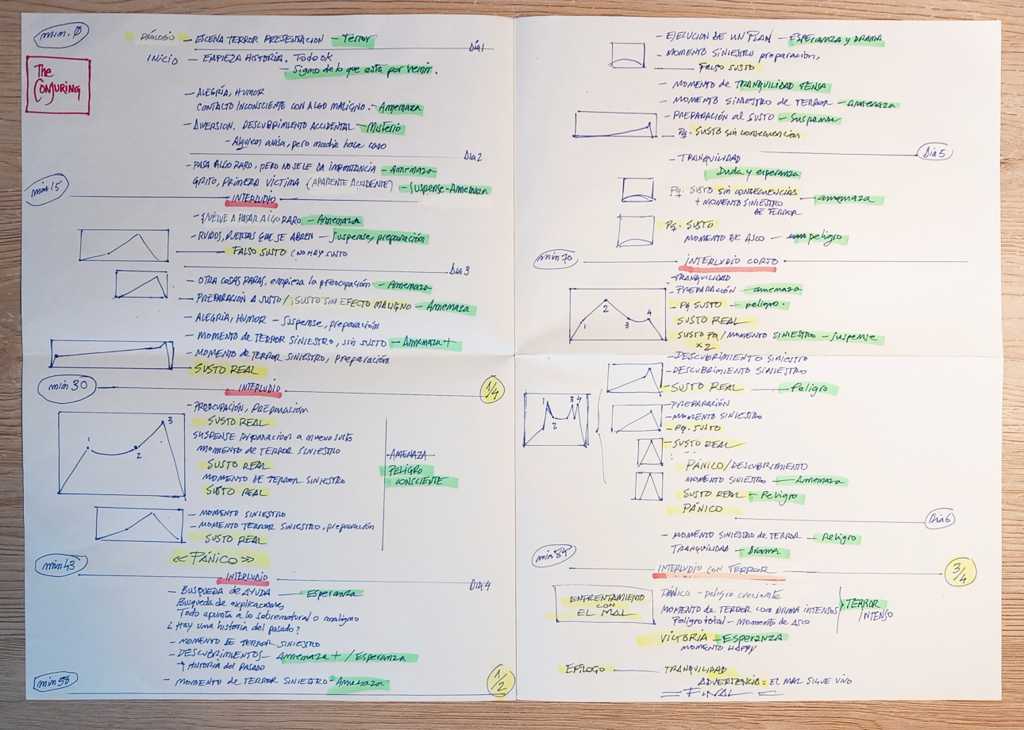 min. 0
The
Conjuring
PRÓLOGO — ESCENA TERROR PRESENTACION — Terror
Día 1
INICIO — EMPIEZA HISTORIA. TODO OK
— Signo de lo que esta por venir.
— ALEGRÍA, HUMOR
CONTACTO INCONSCIENTE CON ALGO MALIGNO. — Amenaza
— DIVERSION. DESCUBRIMIENTO ACCIDENTAL — Misterio
— Alguien avisa, pero nadie hace caso
Día 2
— PASA ALGO RARO, PERO NO SE LE DA IMPORTANCIA — Amenaza
min 15
GRITO, PRIMERA VICTIMA (APARENTE ACCIDENTE) — Suspense - Amenaza
INTERLUDIO
— VUELVE A PASAR ALGO RARO — Amenaza
— RUIDOS, PUERTAS QUE SE ABREN — Suspense, preparación
— FALSO SUSTO (NO HAY SUSTO
Día 3
— OTRA COSAS RARAS, empieza la preocupación — Amenaza
— PREPARACIÓN A SUSTO / ¡SUSTO SIN EFECTO MALIGNO — Amenaza
— ALEGRÍA, HUMOR — Suspense, preparación
— MOMENTO DE TERROR SINIESTRO, SIN SUSTO — Amenaza +
— MOMENTO DE TERROR SINIESTRO, preparación
— SUSTO REAL
min 30
INTERLUDIO
1/4
— PREOCUPACIÓN, PREPARACIÓN
SUSTO REAL
SUSPENSE preparacion a nuevo susto
MOMENTO DE TERROR SINIESTRO
SUSTO REAL
MOMENTO DE TERROR SINIESTRO
SUSTO REAL
1
2
3
— AMENAZA
PELIGRO
CONSCIENTE
— MOMENTO SINIESTRO
— MOMENTO TERROR SINIESTRO, preparación
SUSTO REAL
<< PÁNICO >>
min 43
INTERLUDIO
Día 4
— BUSQUEDA DE AYUDA — Esperanza
Busqueda de explicaciones
Todo apunta a lo sobrenatural o maligno
¿Hay una historia del pasado?
— MOMENTO DE TERROR SINIESTRO
— DESCUBRIMIENTOS — Amenaza + / Esperanza
+ Historia del PASADO
— MOMENTO DE TERROR SINIESTRO — Amenaza
min 58
1/2
— EJECUCION DE UN PLAN — ESPERANZA y DRAMA
— MOMENTO SINIESTRO preparación,
FALSO SUSTO
— MOMENTO DE TRANQUILIDAD TENSA
— MOMENTO SINIESTRO DE TERROR — Amenaza
— PREPARACIÓN AL SUSTO — Suspense
— Pq. SUSTO sin consecuencia
Día 5
— TRANQUILIDAD
Duda y esperanza
Pq. SUSTO SIN CONSECUENCIAS
+ MOMENTO SINIESTRO
DE TERROR
— amenaza
Pq. SUSTO
MOMENTO DE ASCO — peligro
min 70
INTERLUDIO CORTO
— TRANQUILIDAD
— PREPARACIÓN — amenaza
— PQ SUSTO — peligro.
SUSTO REAL
SUSTO PQ / MOMENTO SINIESTRO — Suspense
x 2
1
2
3
4
— DESCUBRIMIENTO SINIESTRO
— DESCUBRIMIENTO SINIESTRO
— SUSTO REAL — Peligro
— PREPARACIÓN
— MOMENTO SINIESTRO
— PQ. SUSTO
— SUSTO REAL
1
2
3 4
PÁNICO / DESCUBRIMIENTO
MOMENTO SINIESTRO — Amenaza
SUSTO REAL — Peligro
PÁNICO
Día 6
— MOMENTO SINIESTRO DE TERROR — Peligro
TRANQUILIDAD — drama
min 84
INTERLUDIO CON TERROR
3/4
ENFRENTAMIENTO
CON
EL MAL
PÁNICO — peligro creciente
MOMENTO DE TERROR CON DRAMA INTENSOS
Peligro total - Momento de Asco
TERROR
INTENSO
VICTORIA — Esperanza
MOMENTO HAPPY
EPÍLOGO — TRANQUILIDAD
ADVERTENCIA: EL MAL SIGUE VIVO
FINAL